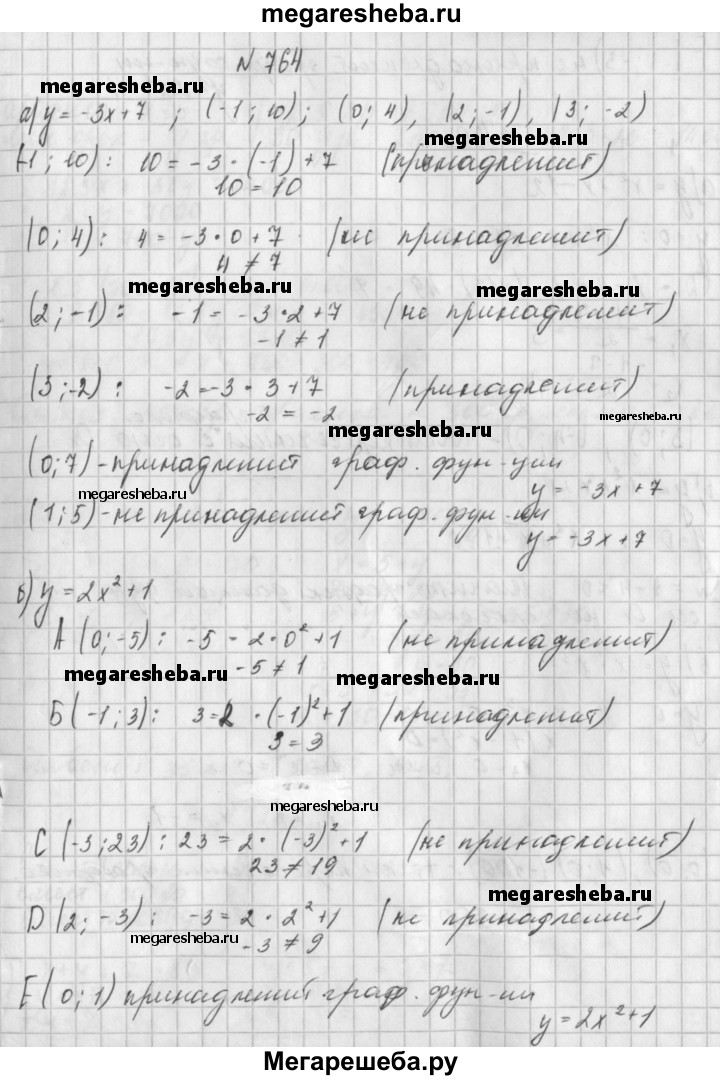 megaresheba.ru
N 764
megaresheba.ru
а) y = -3x+7 ; (-1 ; 10); (0; 4), (2; -1), (3; -2)
megaresheba.ru
(-1; 10): 10 = -3 · (-1) + 7 (принадлежит)
10 = 10
(0; 4): 4 = -3 · 0 + 7 (не принадлежит)
4 ≠ 7
megaresheba.ru megaresheba.ru
(2; -1): -1 = -3 · 2 + 7 (не принадлежит)
-1 ≠ 1
(3; -2): -2 = -3 · 3 + 7 (принадлежит)
-2 = -2
megaresheba.ru
megaresheba.ru
(0; 7) - принадлежит граф. фун-ции
y = -3x + 7
megaresheba.ru
(1; 5) - не принадлежит граф. фун-ии
y = -3x + 7
б) y = 2x² + 1
А (0; -5): -5 = 2 · 0² + 1 (не принадлежит)
-5 ≠ 1
megaresheba.ru megaresheba.ru
Б (-1; 3): 3 = 2 · (-1)² + 1 (принадлежит)
3 = 3
C (-3; 23): 23 = 2 · (-3)² + 1 (не принадлежит)
23 ≠ 19
megaresheba.ru
D (2; -3): -3 = 2 · 2² + 1 (не принадлежит)
megaresheba.ru
-3 ≠ 9
E (0; 1) принадлежит граф. фун-ии
y = 2x² + 1
Мегарешеба.ру